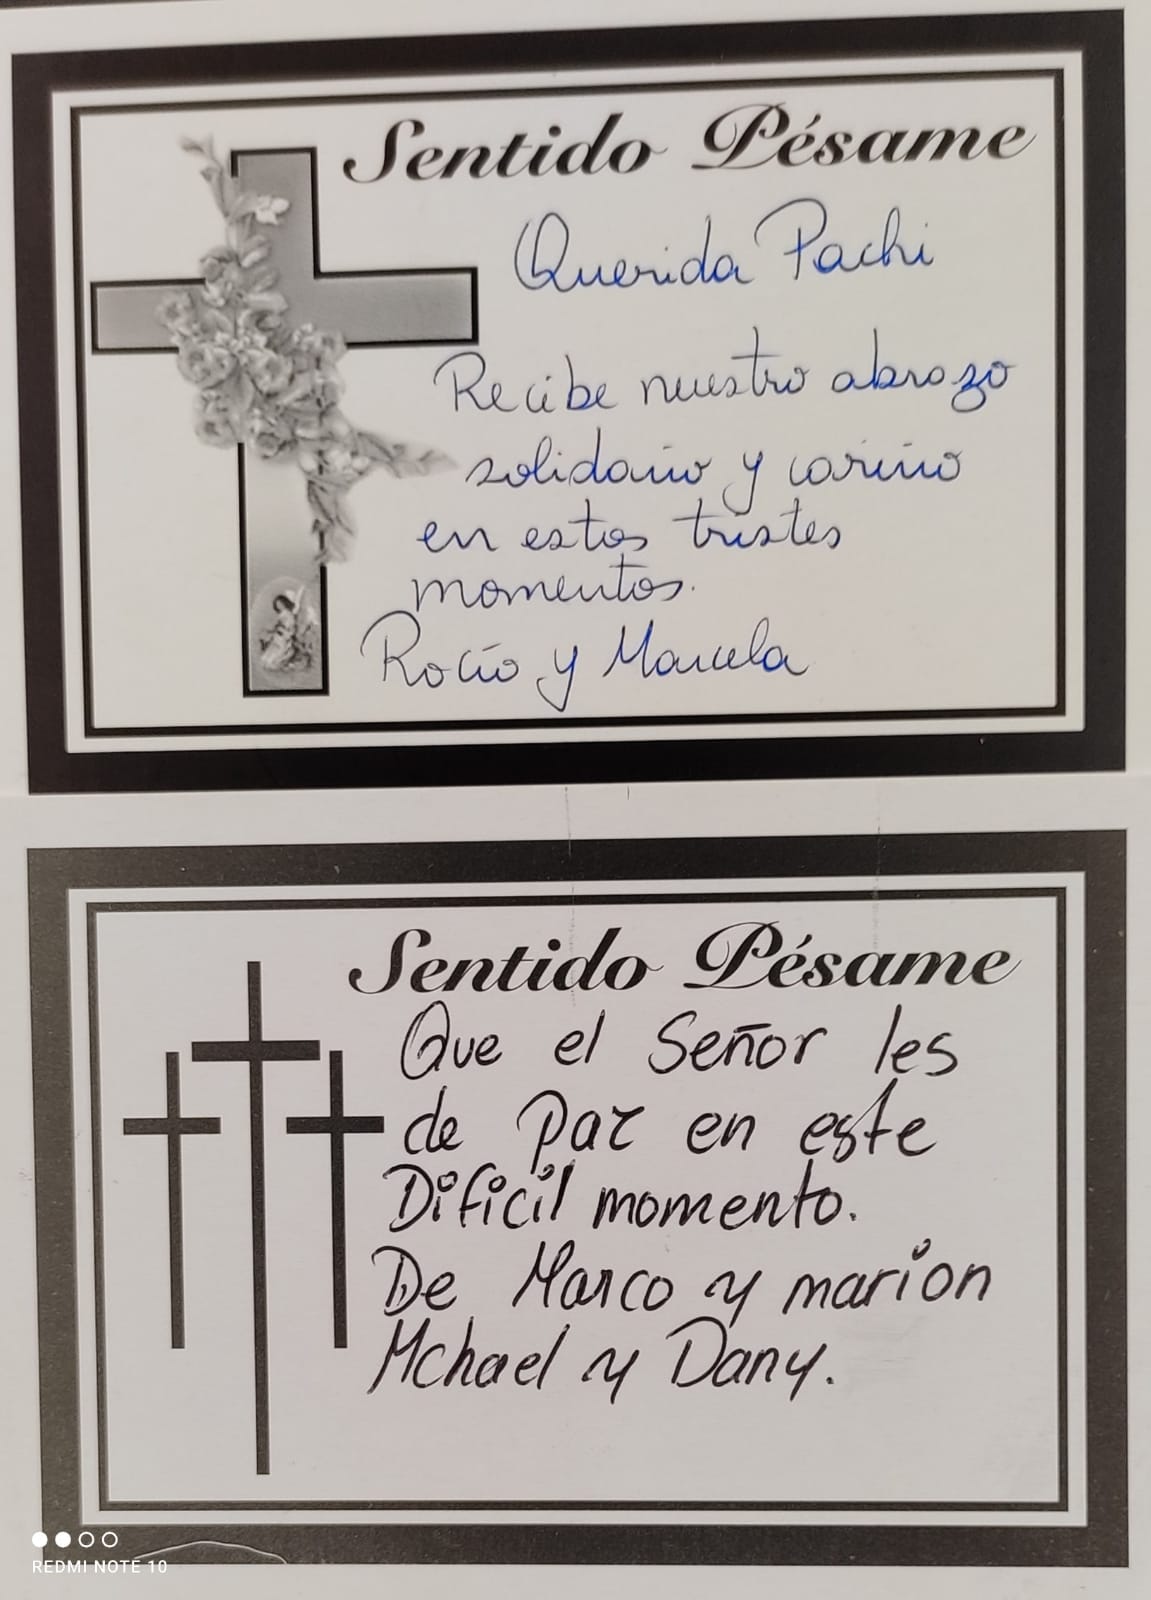 Sentido Pésame
Querida Pachi
Recibe nuestro abrazo
solidario y cariño
en estos tristes
momentos.
Rocío y Marcela
Sentido Pésame
Que el Señor les
de Paz en este
Dificil momento.
De Marco y marion
Mchael y Dany.
REDMI NOTE 10